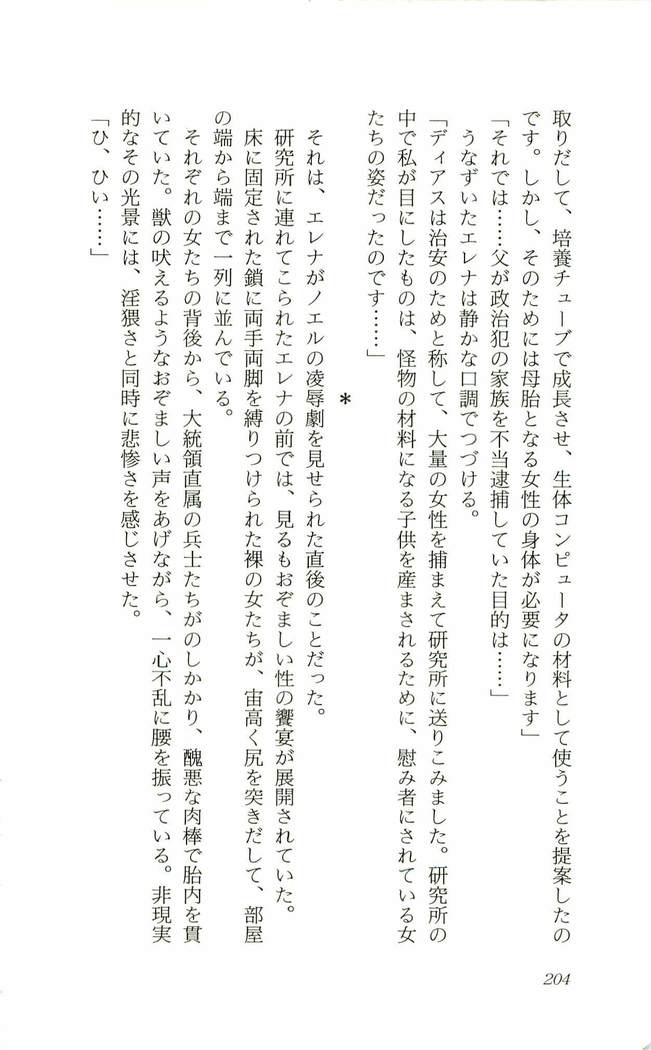 取りだして、培養チューブで成長させ、生体コンピュータの材料として使うことを提案したの
です。しかし、そのためには母胎となる女性の身体が必要になります」
「それでは……父が政治犯の家族を不当逮捕していた目的は……」
うなずいたエレナは静かな口調でつづける。
「ディアスは治安のためと称して、大量の女性を捕まえて研究所に送りこみました。研究所の
中で私が目にしたものは、怪物の材料になる子供を産まされるために、慰み者にされている女
たちの姿だったのです……」
*
それは、エレナがノエルの凌辱劇を見せられた直後のことだった。
研究所に連れてこられたエレナの前では、見るもおぞましい性の饗宴が展開されていた。
床に固定された鎖に両手両脚を縛りつけられた裸の女たちが、宙高く尻を突きだして、部屋
の端から端まで一列に並んでいる。
それぞれの女たちの背後から、大統領直属の兵士たちがのしかかり、醜悪な肉棒で胎内を貫
いていた。獣の吠えるようなおぞましい声をあげながら、一心不乱に腰を振っている。非現実
的なその光景には、淫猥さと同時に悲惨さを感じさせた。
「ひ、ひい……」
204